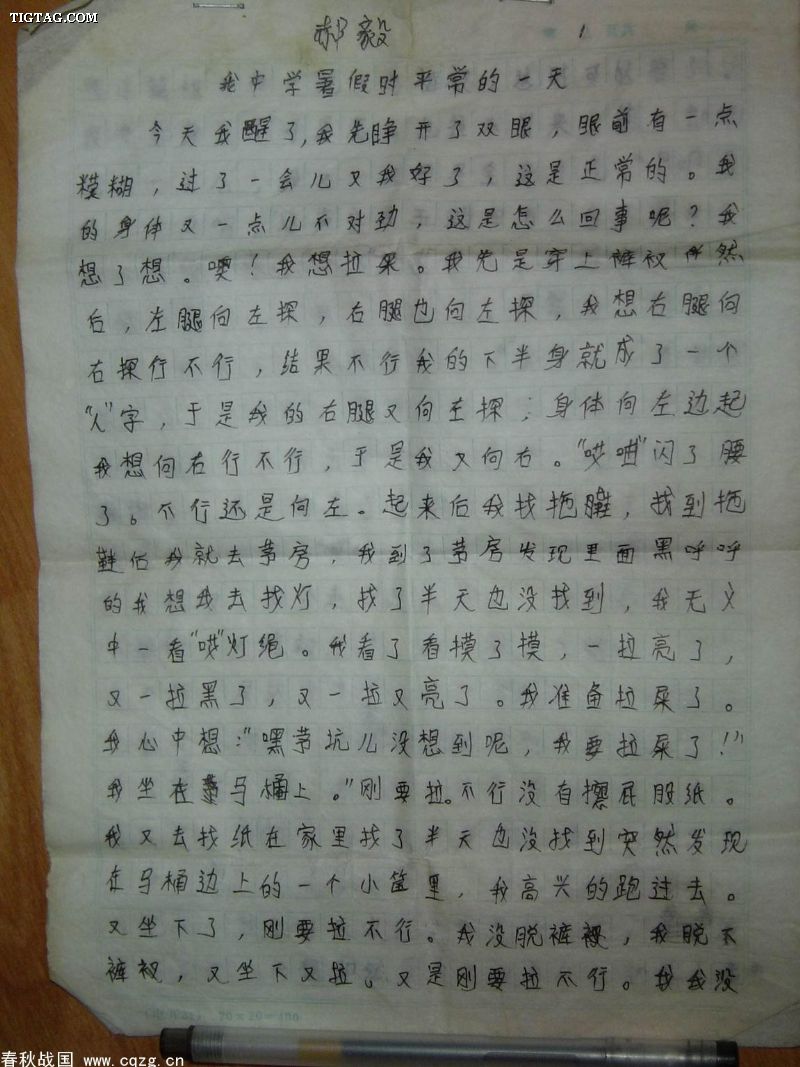 TIGTAG.COM
郝毅 1
我中学暑假时平常的一天
今天我醒了,我先睁开了双眼,眼前有一点
糢糊,过了一会儿又我好了,这是正常的。我
的身体又一点儿不对劲,这是怎么回事呢?我
想了想。噢!我想拉屎。我先是穿上裤衩 然
后,左腿向左探,右腿也向左探,我想右腿向
右探行不行,结果不行我的下半身就成了一个
“人”字,于是我的右腿又向左探;身体向左边起
我想向右行不行,于是我又向右。“哎呦”闪了腰
了。不行还是向左。起来后我找拖鞋,找到拖
鞋后我就去茅房,我到了茅房发现里面黑呼呼
的我想我去找灯,找了半天也没找到,我无义
中一看“哎”灯绳。我看了看摸了摸,一拉亮了,
又一拉黑了,又一拉又亮了。我准备拉屎了。
我心中想:“嘿茅坑儿没想到呢,我要拉屎了!”
我坐在马桶上。”刚要拉。不行没有擦屁股纸。
我又去找纸在家里找了半天也没找到突然发现
在马桶边上的一个小筐里,我高兴的跑过去。
又坐下了,刚要拉不行。我没脱裤衩,我脱下
裤衩,又坐下又拉。又是刚要拉不行。我我没
20×20=400
春秋战国 www.cqzg.cn